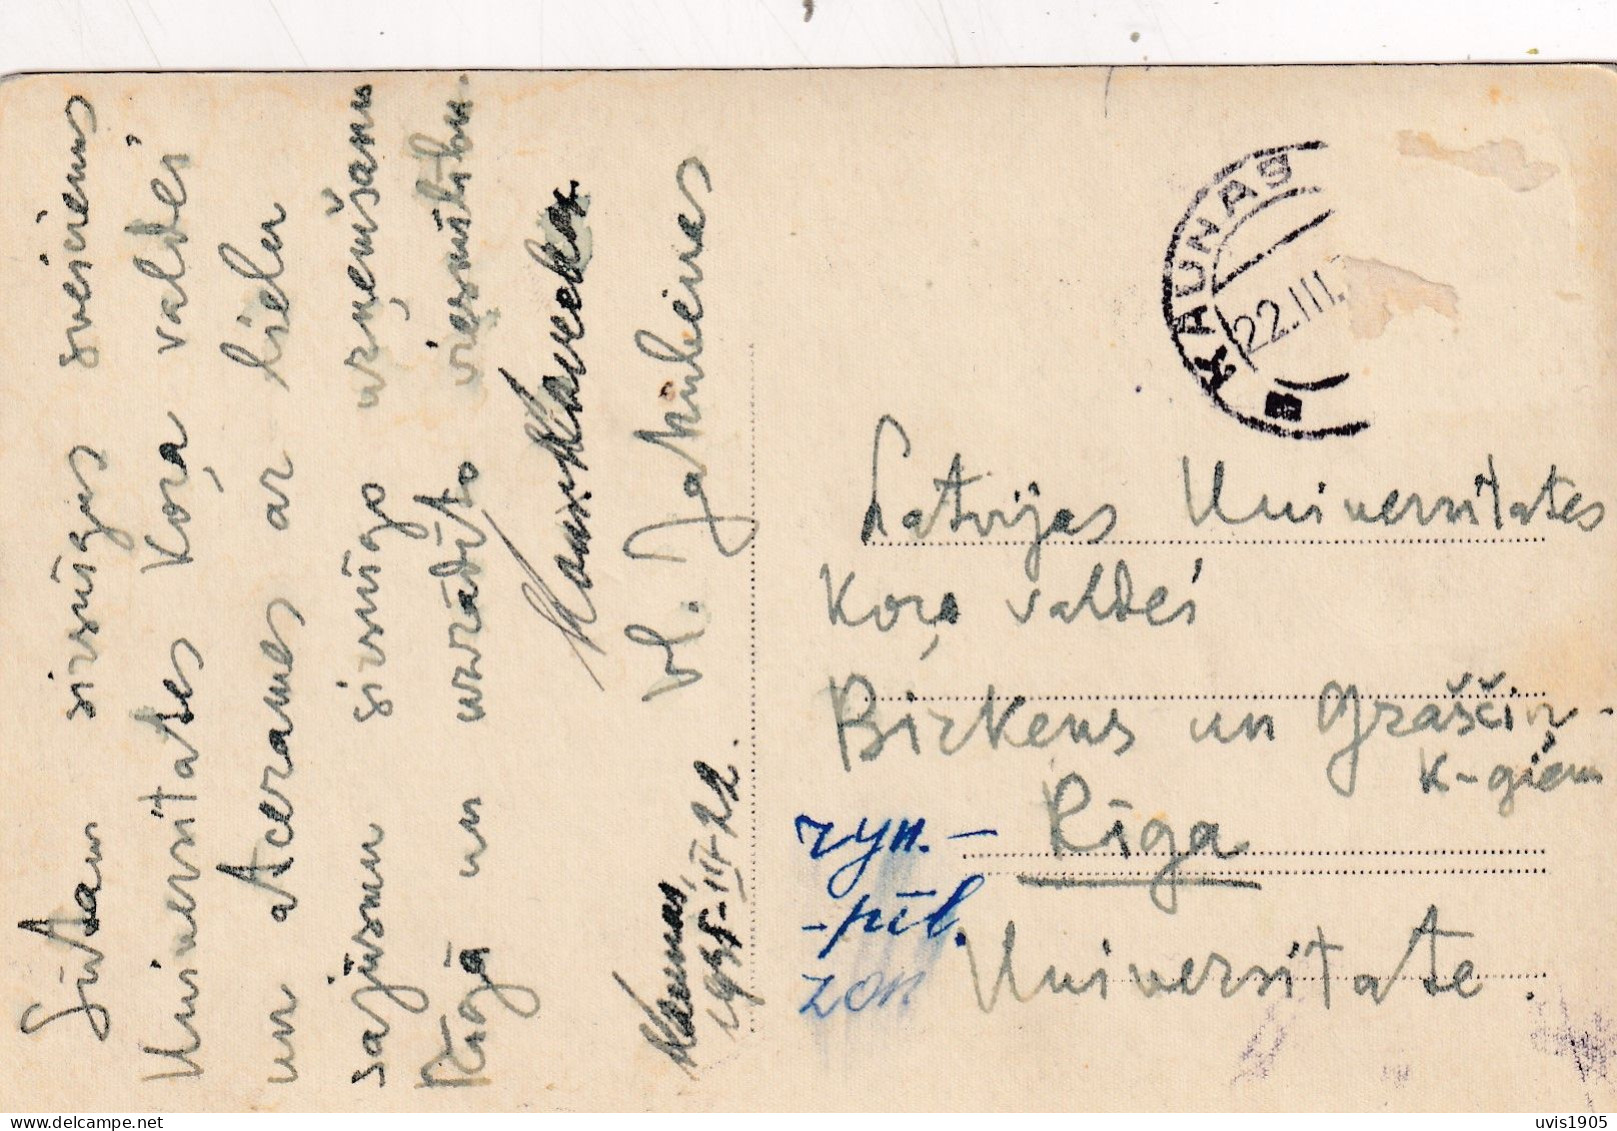 Sūtam sirsnīgus sveicienus
Universitates Koŗa valdei
un Aceŗames ar lielu
sajūsmu sirsnīgo uzņemšanu
Rīgā un uzrādīto viesmīlību.
Vl. Jakubėnas
Kaunas,
1935-III-22.
KAUNAS
22.III.
Latvijas Universitates
Koŗa valdei
Birkens un Graščin-
k-giem
Rīga
Universitate.
zyn.-
-pil.
zon
uvis1905